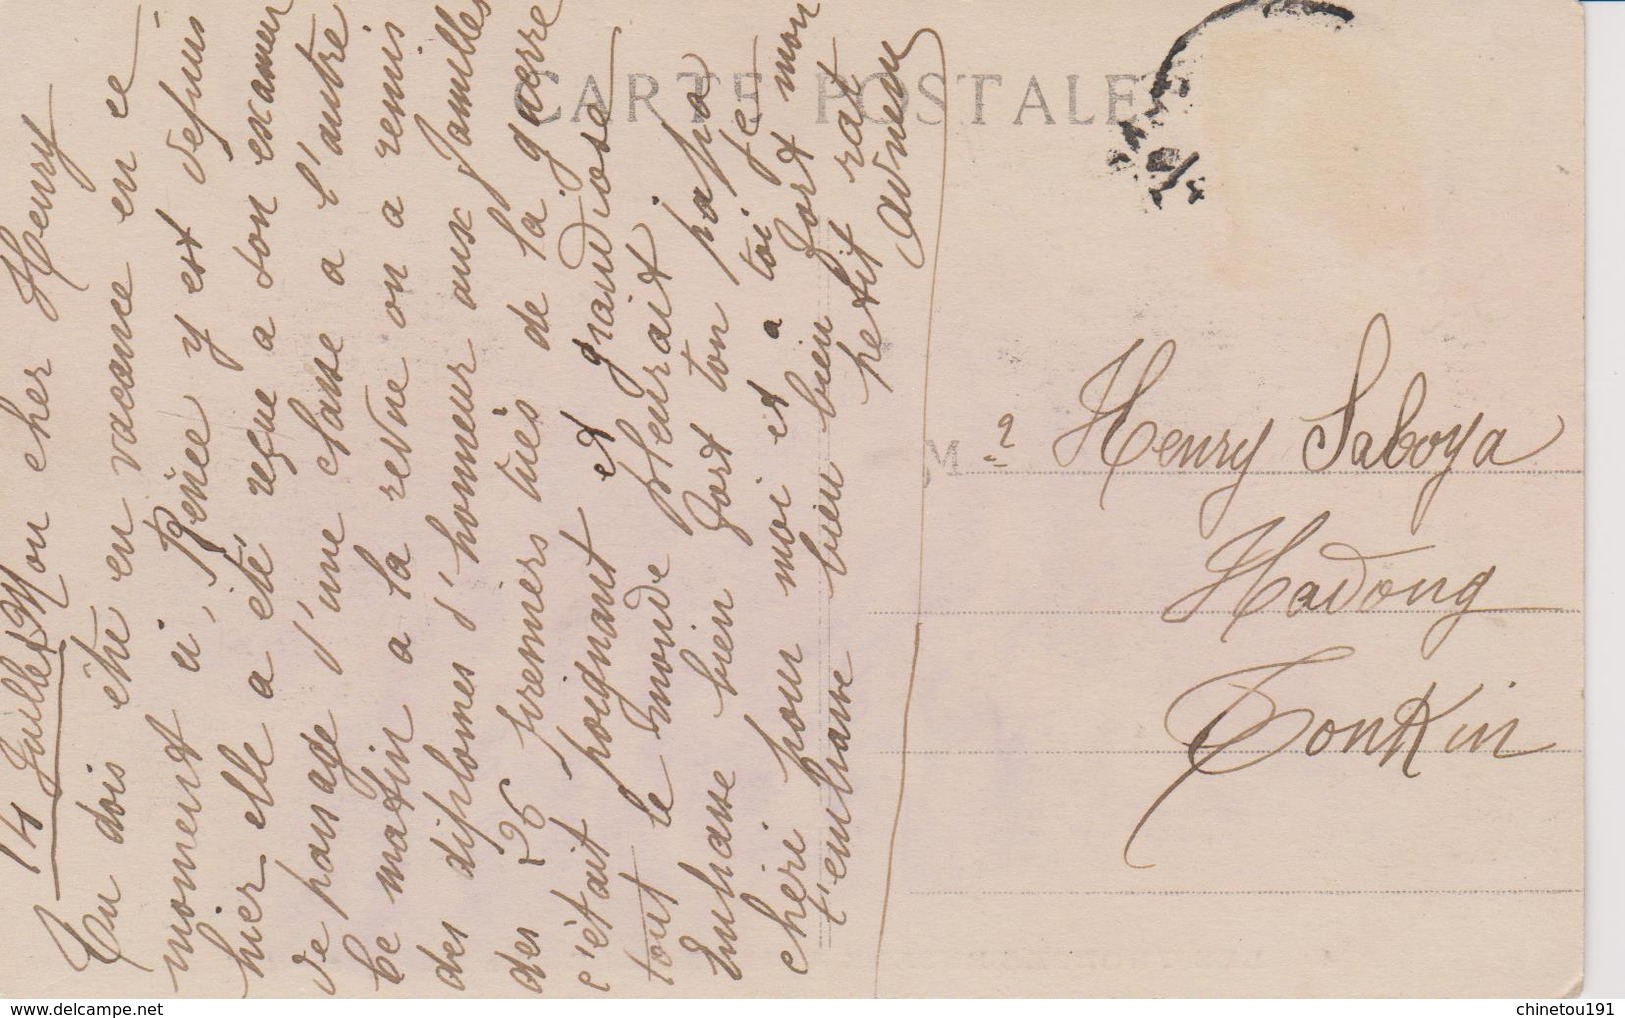 14 Juillet Mon cher Henry
Tu dois être en vacance en ce
moment ci, Renée y est depuis
hier elle a été reçue a son examen
de passage d'une classe a l'autre
Ce matin a la revue on a remis
des diplomes d'honneur aux familles
des 26 premiers tués de la guerre
c'était poignant et grandiose
tout le monde pleurait
Embrasse bien fort ton papa
chéri pour moi et a toi je
t'embrasse bien bien bien fort mon
petit rat
CARTE POSTALE
M Henry Saboya
Hadong
Tonkin
chinetou191